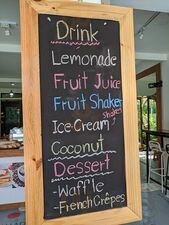 Drink
Lemonade
Fruit Juice
Fruit Shaker
Ice-Cream shakes
Coconut
Dessert
-Waffle
-French Crêpes